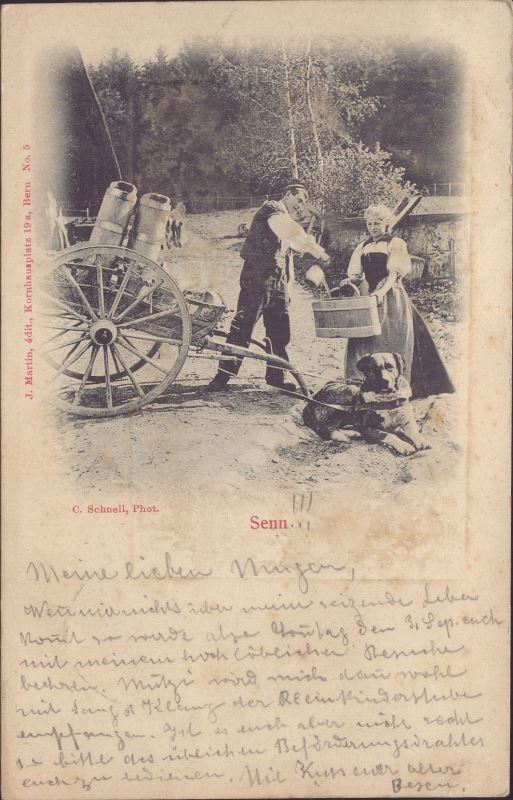 J. Martin, édit., Kornhausplatz 19a, Bern No. 5
C. Schnell, Phot.
Senn!!!
Meine lieben
Wenn nichts über mein reizende Leber
kommt so werde also Sontag den 3. Sep. euch
mit meinem hochlöblichen Besuche
Mutzi wird mich dan wohl
mit Sang & Klang der Kleinkinderstube
empfangen. Ist es euch aber nicht recht
so bitte des üblichen Beförderungsdrahtes
euch zu bedienen. Mit Kuss euer alter
Besen.